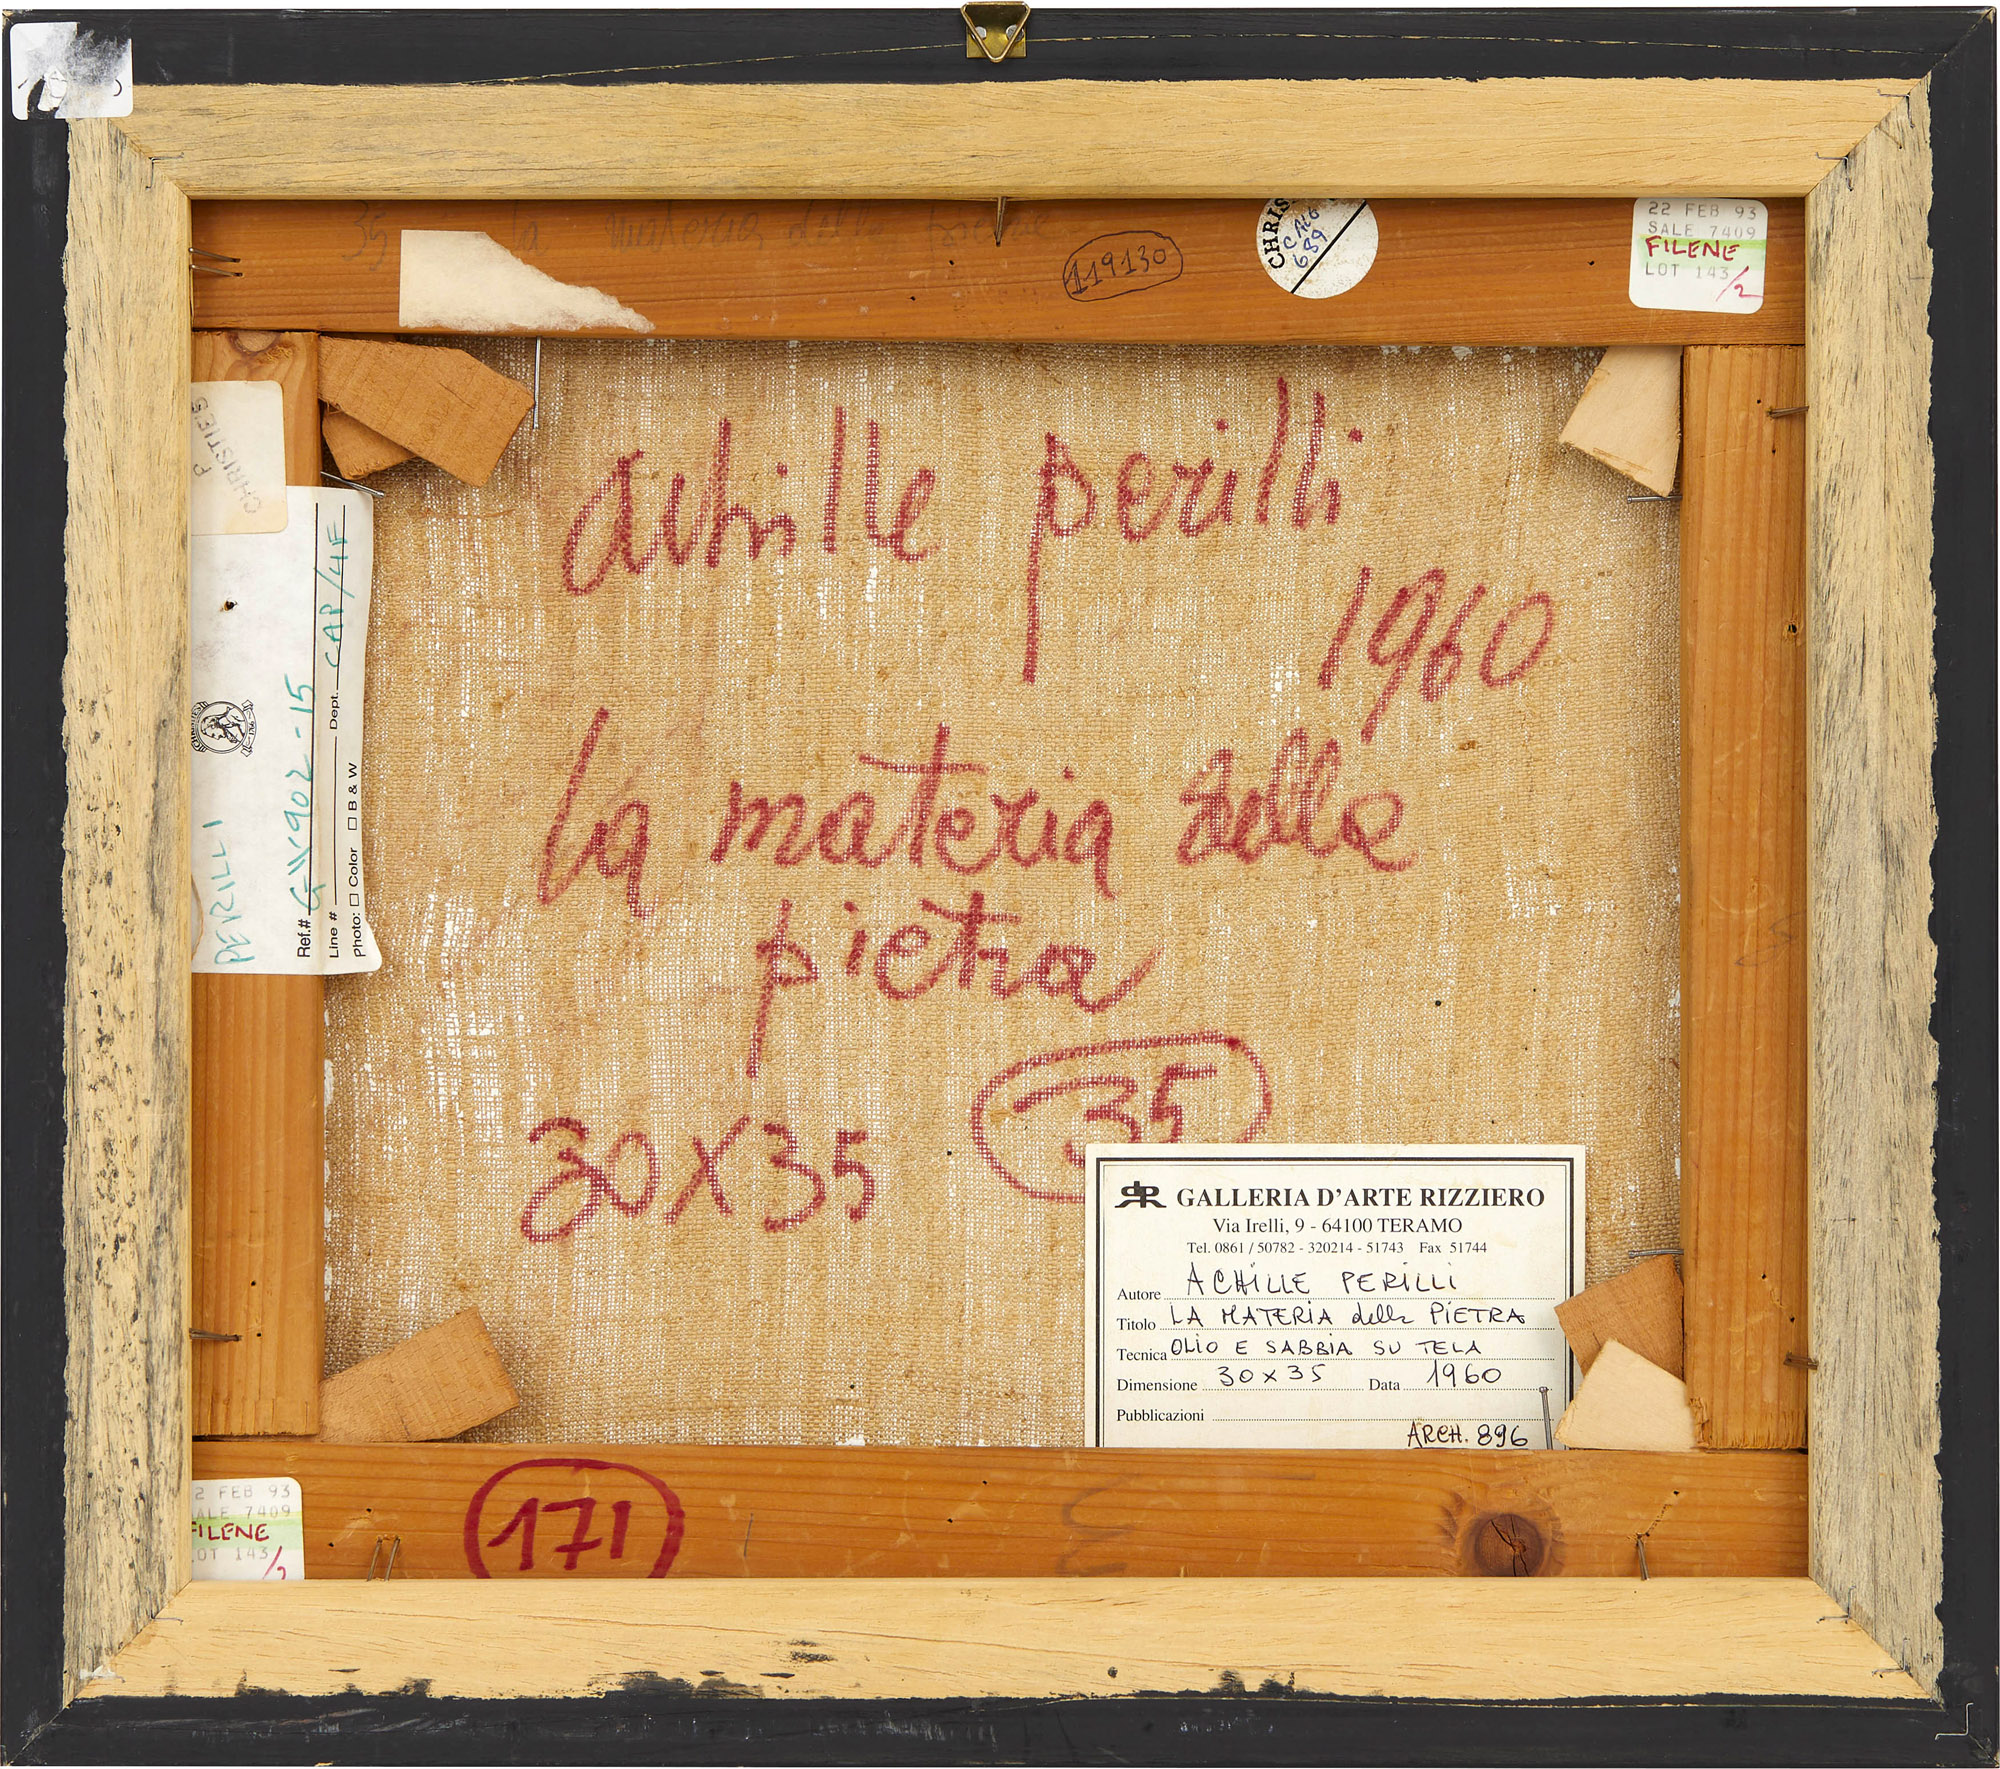 35 la materia della pietra
119130
CHRIS
CALG
689
22 FEB 93
SALE 7409
FILENE
LOT 143/2
CHRISTIES
P
PERILLI
Ref.# 902-15
Line # Dept. CAP/4F
Photo: □ Color □ B & W
achille perilli
1960
la materia della
pietra
35
30x35
GALLERIA D'ARTE RIZZIERO
Via Irelli, 9 - 64100 TERAMO
Tel. 0861 / 50782 - 320214 - 51743 Fax 51744
Autore ACHILLE PERILLI
Titolo LA MATERIA della PIETRA
Tecnica OLIO E SABBIA SU TELA
Dimensione 30x35 Data 1960
Pubblicazioni
ARCH. 896
2 FEB 93
ALE 7409
FILENE
OT 143/2
171